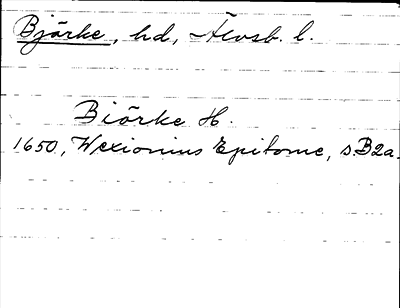 Bjärke, hd, Älvsb. l.
Biärke H.
1650, Wexionius Epitome, s. B2a.